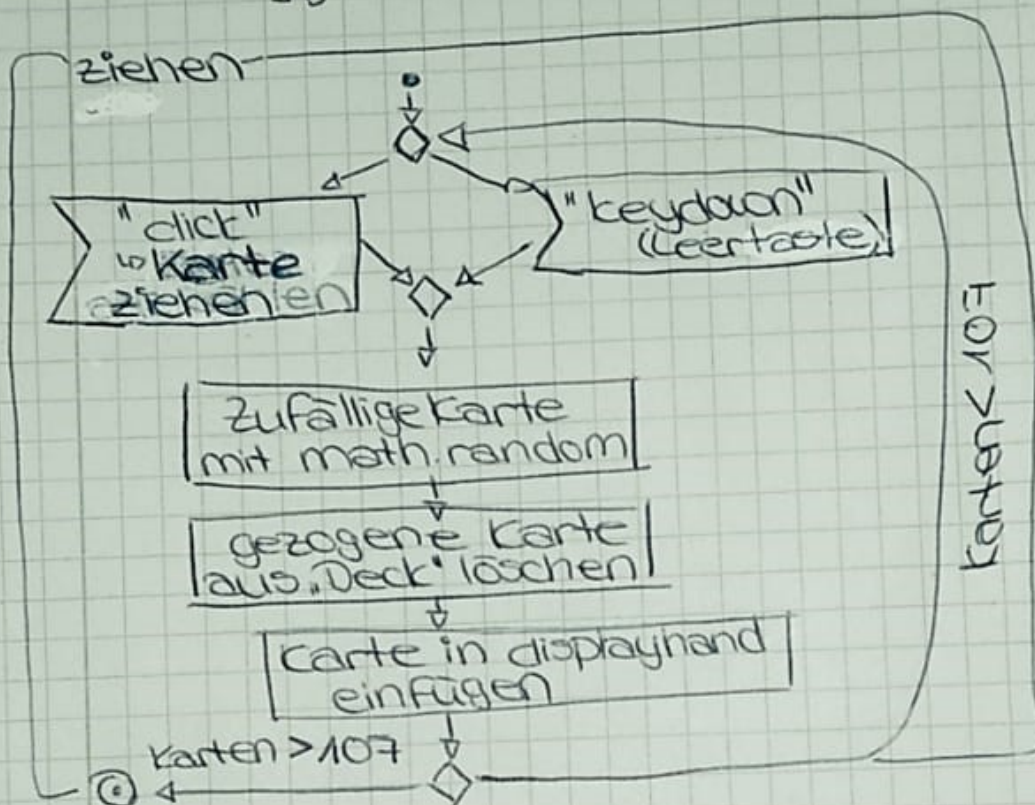 ziehen
"click"
↳ Karte
ziehen
"keydown"
(Leertaste)
Karten < 107
Zufällige Karte
mit math.random
gezogene Karte
aus „Deck" löschen
Karte in displayhand
einfügen
Karten > 107